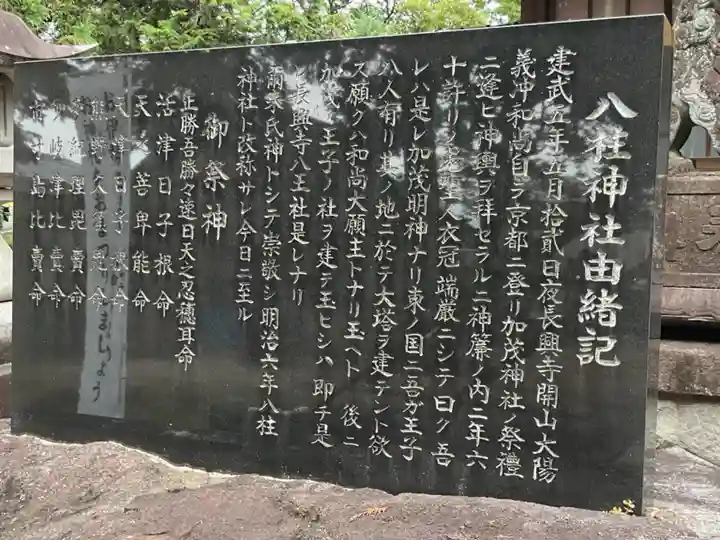 八柱神社由緒記
建武五年五月拾貳日夜長興寺開山大陽
義冲和尚自ラ京都ニ登リ加茂神社ノ祭禮
ニ逢ヒ神輿ヲ拜セラルニ神簾ノ内ニ年六
十許リノ老翁一人衣冠端厳ニシテ曰ク吾
レハ是レ加茂明神ナリ東ノ国ニ吾ガ王子
八人有リ其ノ地ニ於テ大塔ヲ建テント欲
ス願クハ和尚大願主トナリ玉ヘト 後ニ
加茂ノ王子ノ社ヲ建テ玉ヒシハ即チ是
レ長興寺八王社是レナリ
爾来氏神トシテ崇敬シ明治六年八柱
神社ト改称サレ今日ニ至ル
御祭神
正勝吾勝々速日天之忍穂耳命
活津日子根命
天之善卑能命
天津日子根命
熊野久須毘命
理毘賣命
岐津比賣命
市寸島比賣命